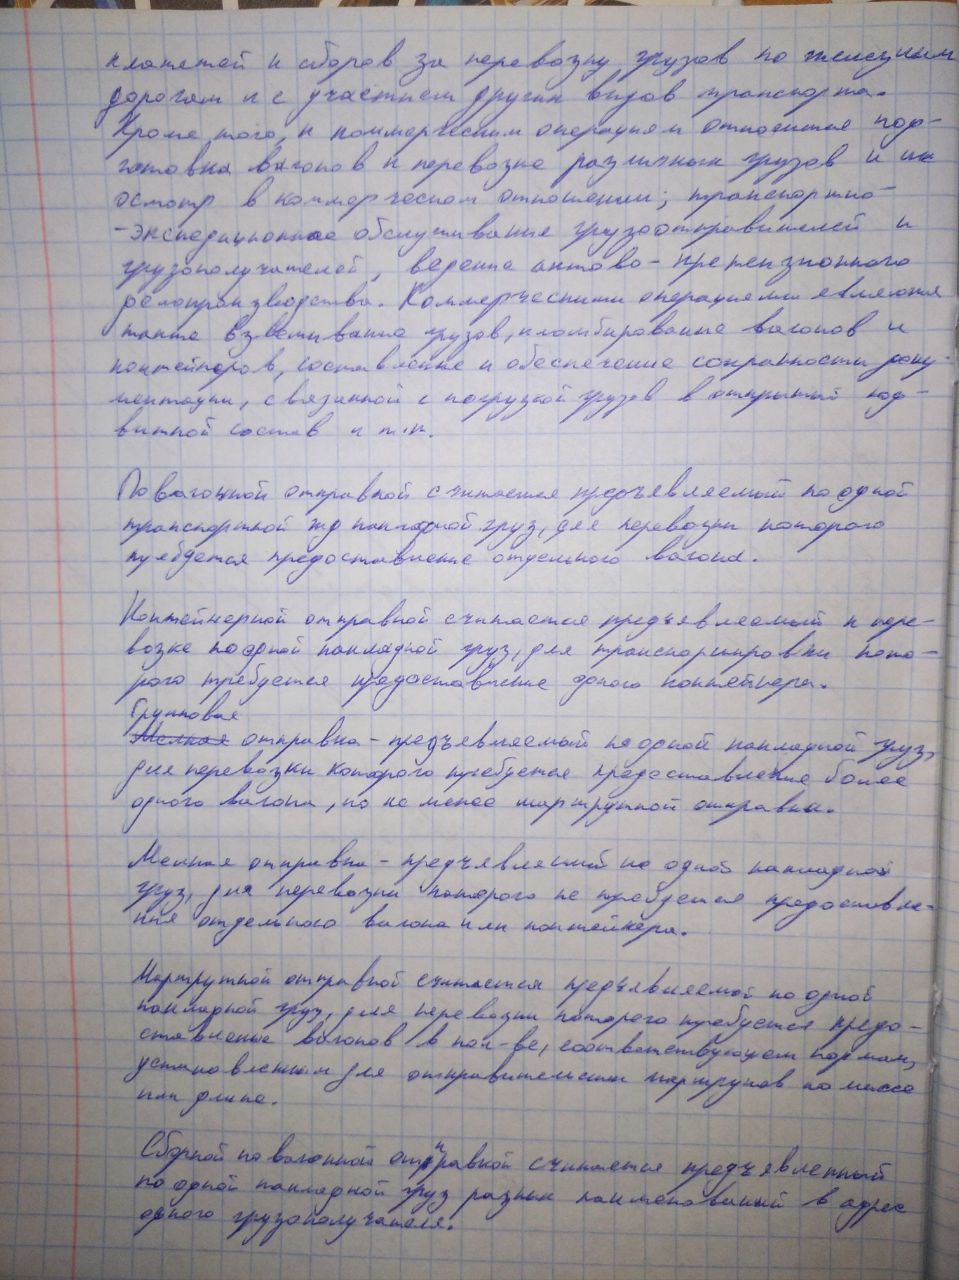 платежей и сборов за перевозку грузов по железным
дорогам и с участием других видов транспорта.
Кроме того, к коммерческим операциям относится под-
готовка вагонов к перевозке различных грузов и их
осмотр в коммерческом отношении; транспортно-
-экспедиционное обслуживание грузоотправителей и
грузополучателей, ведение актово-претензионного
делопроизводства. Коммерческими операциями являются
также взвешивание грузов, пломбирование вагонов и
контейнеров, составление и обеспечение сохранности доку-
ментации, связанной с погрузкой грузов в открытый под-
вижной состав и т.п.
Повагонной отправкой считается предъявляемый по одной
транспортной жд накладной груз, для перевозки которого
требуется предоставление отдельного вагона.
Контейнерной отправкой считается предъявляемый к пере-
возке по одной накладной груз, для транспортировки кото-
рого требуется предоставление одного контейнера.
Групповая
Мелкая отправка - предъявляемый по одной накладной груз,
для перевозки которого требуется предоставление более
одного вагона, но не менее маршрутной отправки.
Мелкая отправка - предъявляемый по одной накладной
груз, для перевозки которого не требуется предоставле-
ния отдельного вагона или контейнера.
Маршрутной отправкой считается предъявляемый по одной
накладной груз, для перевозки которого требуется предо-
ставление вагонов в кол-ве, соответствующем нормам,
установленным для отправительских маршрутов по массе
или длине.
Сборной повагонной отправкой считается предъявленный
по одной накладной груз разных наименований в адрес
одного грузополучателя.